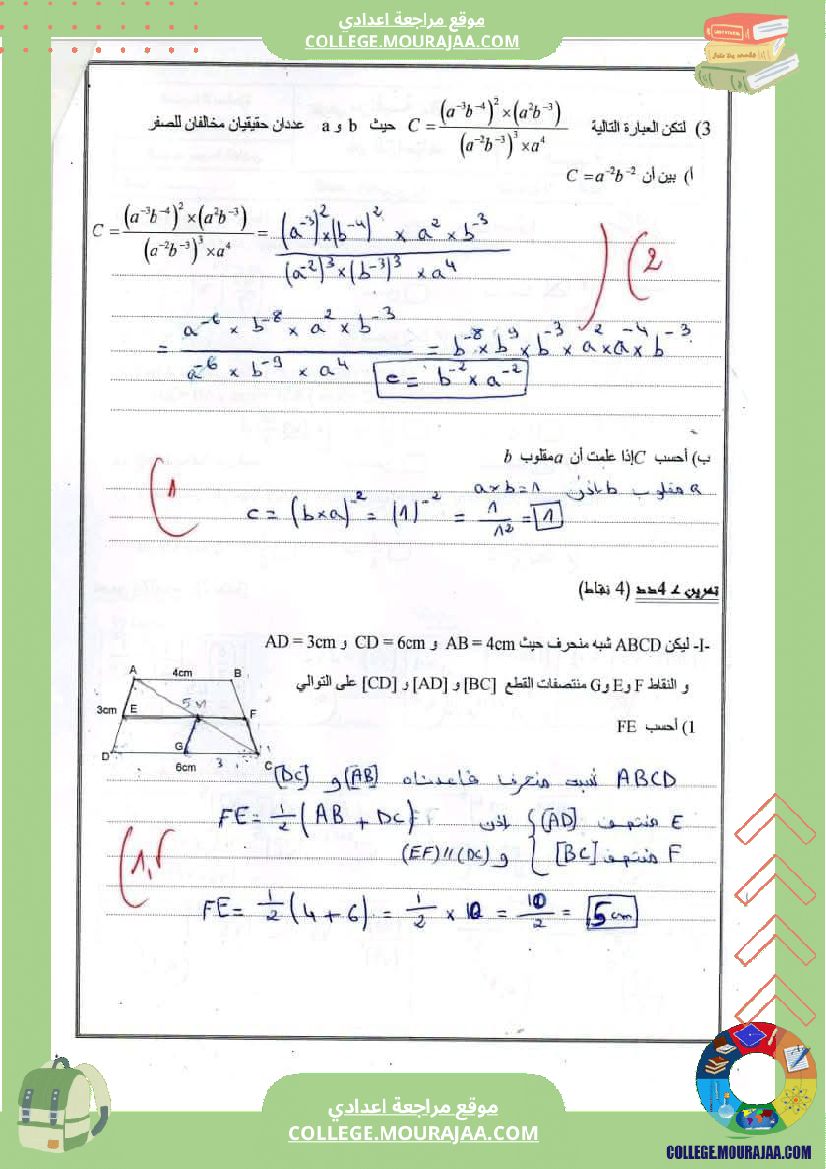 موقع مراجعة اعدادي
COLLEGE.MOURAJAA.COM
3) لتكن العبارة التالية C = (a⁻³b⁻⁴)² × (a²b⁻³) / (a⁻²b⁻³)³ × a⁴ حيث b و a عددان حقيقيان مخالفان للصفر
أ) بين أن C = a⁻²b⁻²
C = (a⁻³b⁻⁴)² × (a²b⁻³) / (a⁻²b⁻³)³ × a⁴ = (a⁻³)² × (b⁻⁴)² × a² × b⁻³ / (a⁻²)³ × (b⁻³)³ × a⁴
(2
= a⁻⁶ × b⁻⁸ × a² × b⁻³ / a⁻⁶ × b⁻⁹ × a⁴ = b⁻⁸ × b⁹ × b⁻³ × a² × a⁻⁴ × b⁻³
c = b⁻² × a⁻²
ب) أحسب C إذا علمت أن a مقلوب b
a مقلوب b اذن a×b=1
(1
c = (b×a)⁻² = (1)⁻² = 1/1² = 1
تمرين عدد 4 (4 نقاط)
-I- ليكن ABCD شبه منحرف حيث AB = 4cm و CD = 6cm و AD = 3cm
و النقاط F و E و G منتصفات القطع [BC] و [AD] و [CD] على التوالي
1) أحسب FE
A 4cm B
3cm E 5 M F
D G 3 C
6cm
ABCD شبه منحرف قاعدتاه [AB] و [DC]
E منتصف [AD] اذن FE = 1/2 (AB + DC)
F منتصف [BC] و (EF)//(DC)
(1,5
FE = 1/2 (4+6) = 1/2 × 10 = 10/2 = 5cm
موقع مراجعة اعدادي
COLLEGE.MOURAJAA.COM
COLLEGE.MOURAJAA.COM